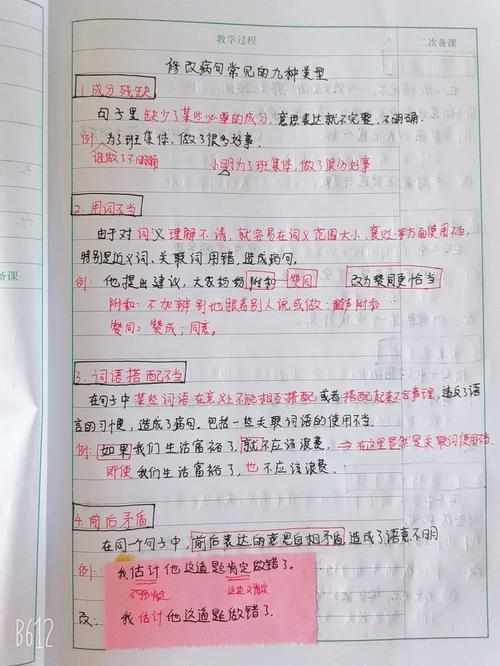 教学过程
二次备课
修改病句常见的九种类型
1.成分残缺
句子里缺少了某些必要的成分,意思表达就不完整,不明确.
例:为了班集体,做了很多好事.
谁做了不明确
小明为了班集体,做了很多好事
2.用词不当
由于对词义理解不清,就容易在词义范围大小、褒贬等方面使用不当.
特别是近义词,关联词用错,造成病句.
例:他提出建议,大家纷纷附和 赞同 改为赞同更恰当
附和:不加辨别地跟着别人说或做:随声附和
赞同:赞成;同意。
3.词语搭配不当
在句子中某些词语在意义上不能相互搭配或者搭配起来不合事理,违反了语
言的习惯,造成了病句。包括一些关联词语的使用不当.
例:如果我们生活富裕了,就不应该浪费.
即使我们生活富裕了,也不应该浪费.
4.前后矛盾
在同一个句子中,前后表达的意思自相矛盾,造成了语意不明
例:我估计他这道题肯定做错了.
这边又肯定
改:我估计他这道题做错了.
备课
B612